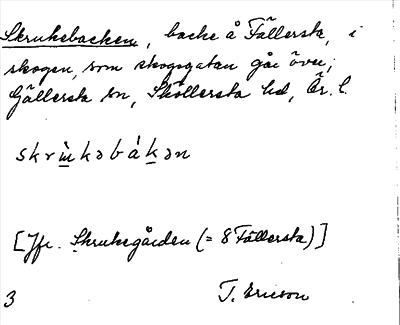 Skruksbacken, backe å Fällersta, i
skogen, som skogsgatan går över;
Gällersta sn, Sköllersta hd, Ör. l.
skrùkəbákən
[Jfr. Skruksgården (= 8 Fällersta)]
3 T. Ericson